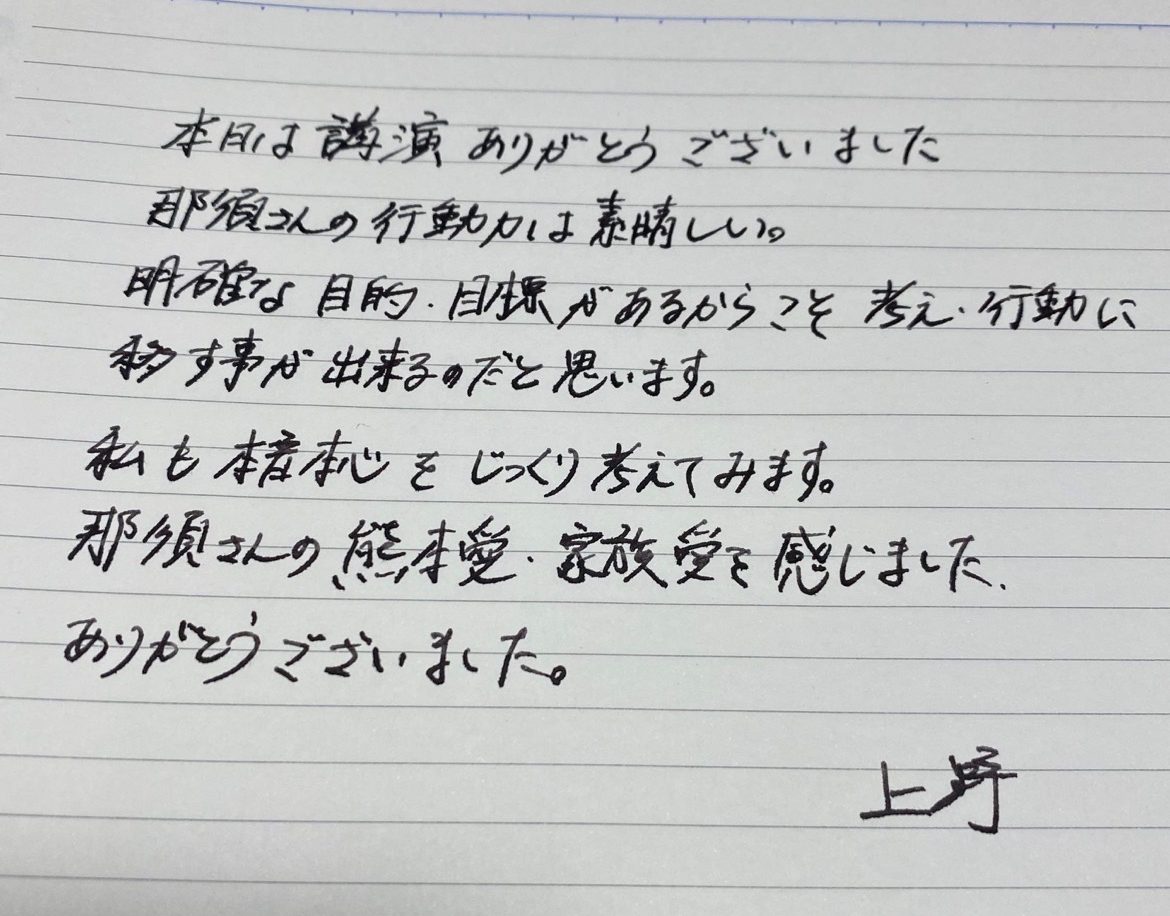 本日は講演ありがとうございました
那須さんの行動力は素晴しい。
明確な目的・目標があるからこそ考え・行動に
移す事が出来るのだと思います。
私も本音本心をじっくり考えてみます。
那須さんの熊本愛・家族愛を感じました、
ありがとうございました。
上野